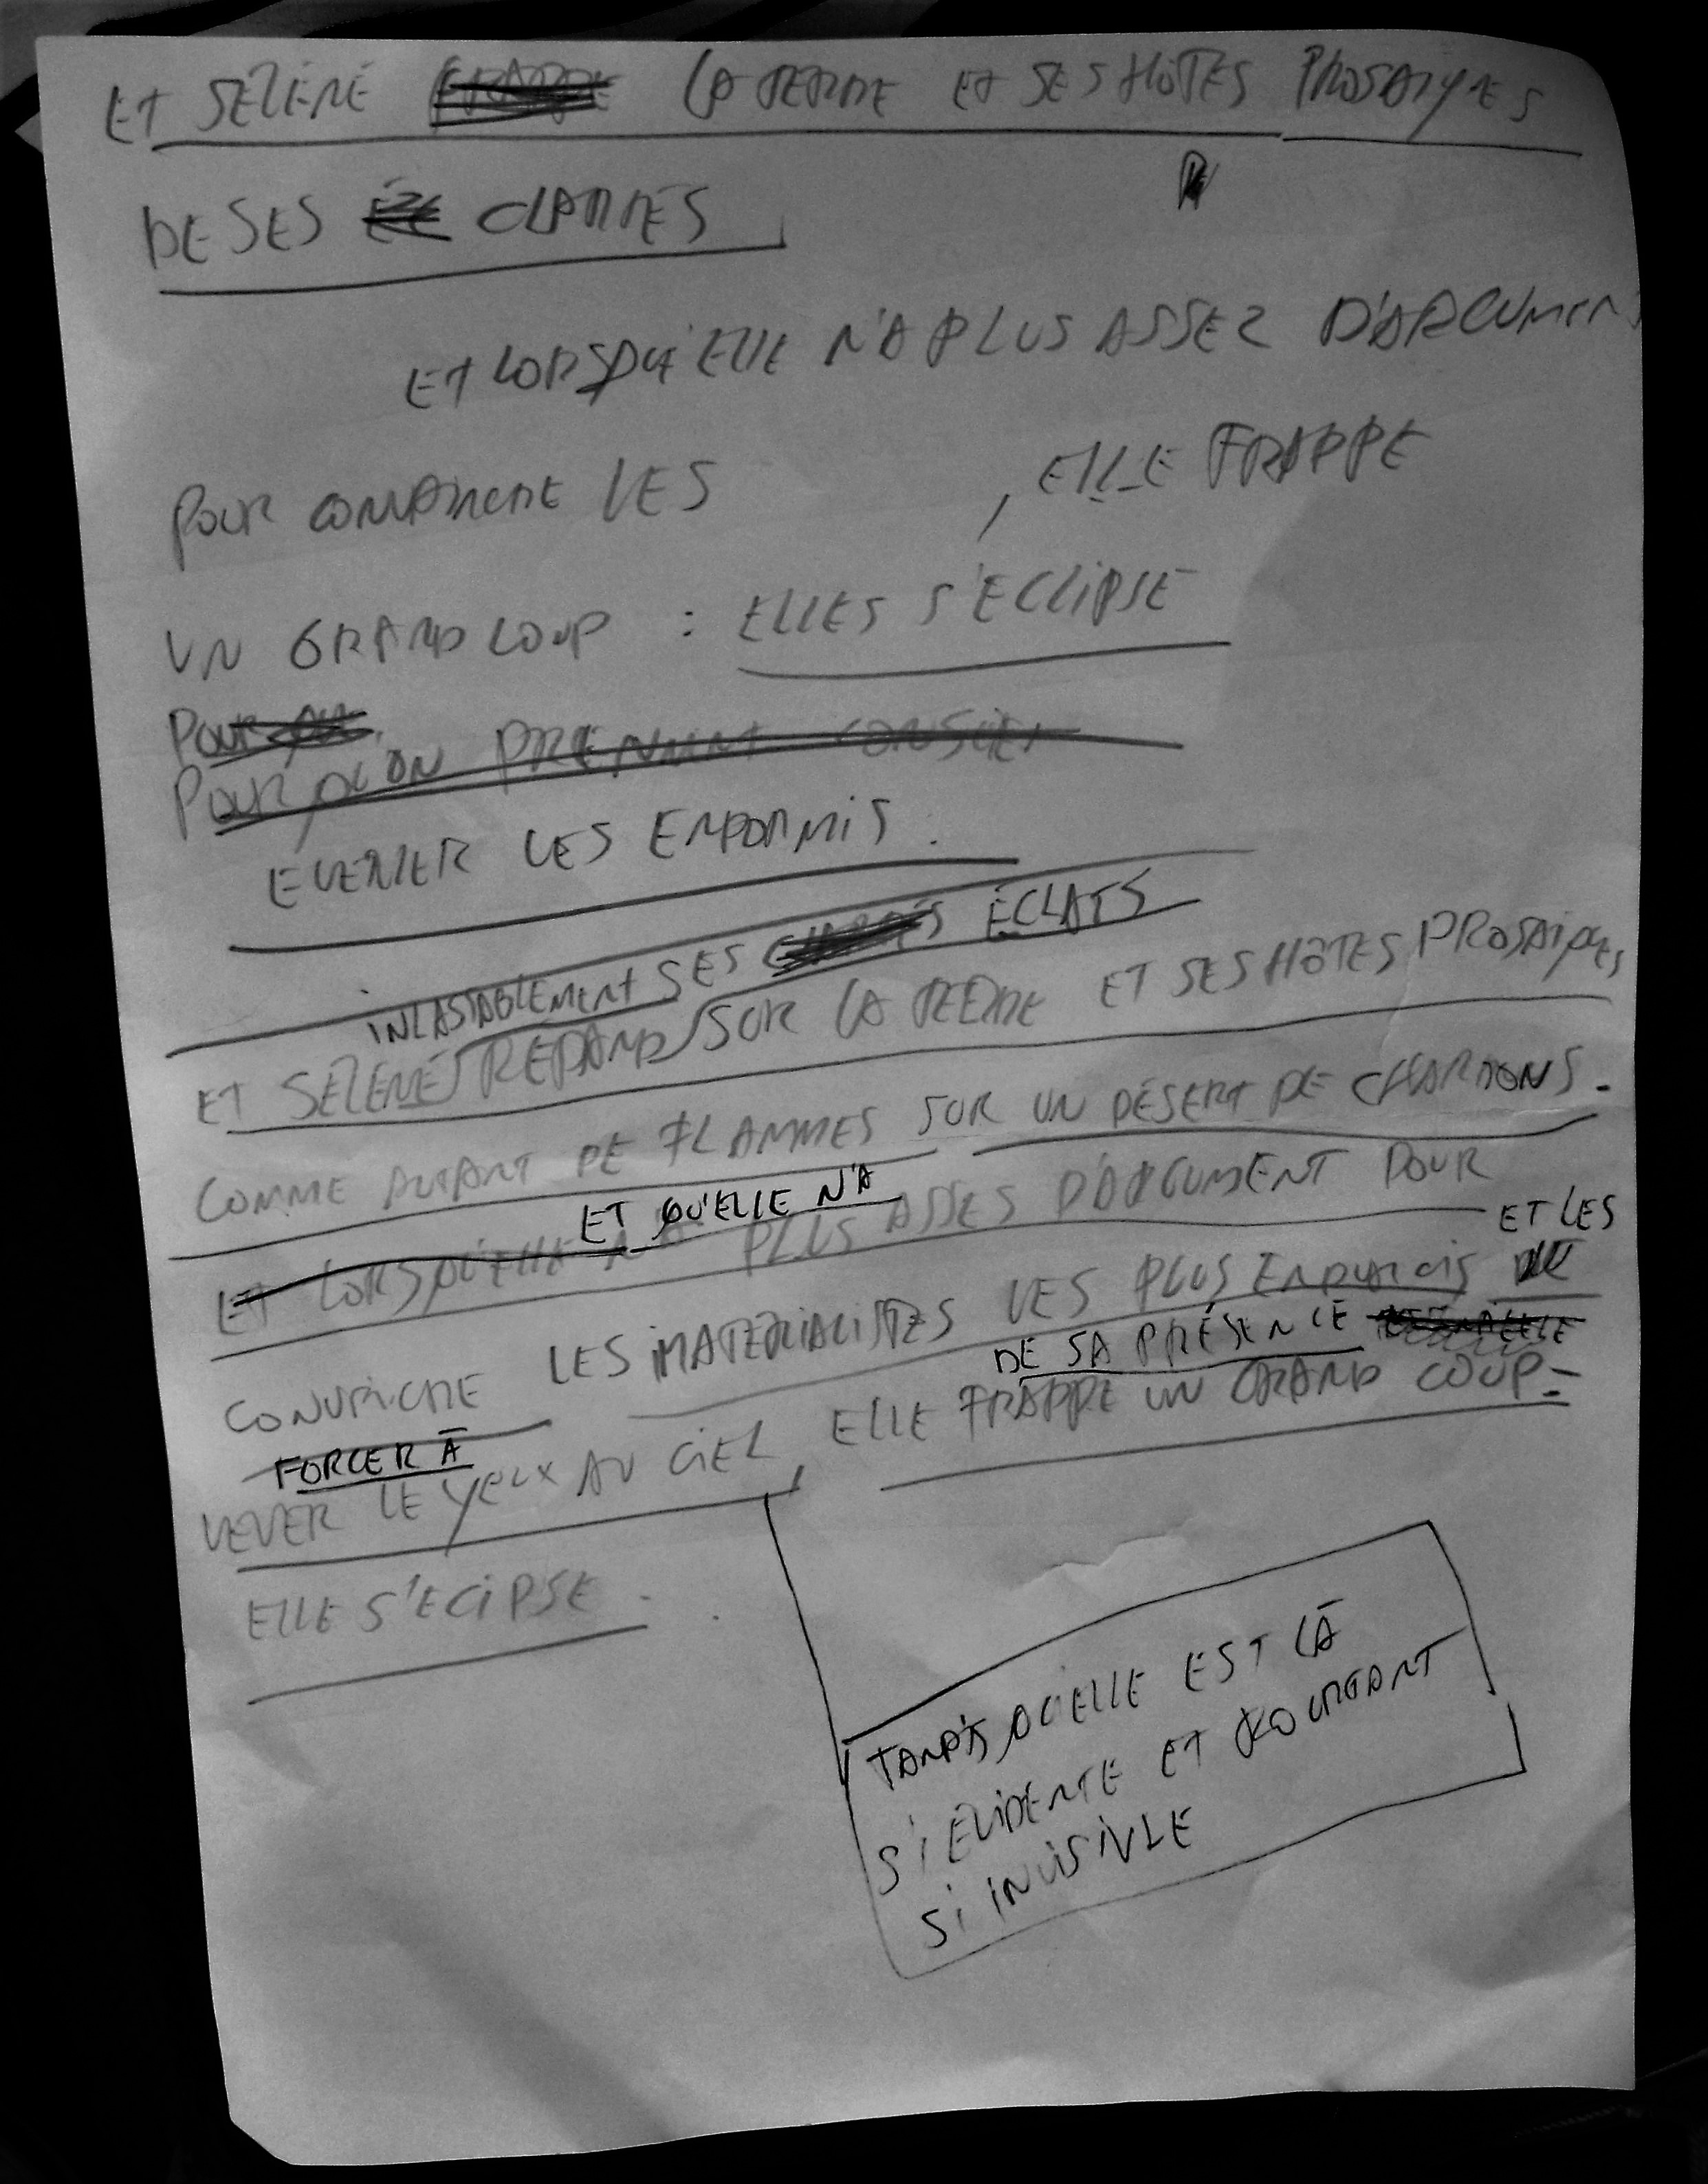 ET SÉLÉNÉ FRAPPE LA TERRE ET SES HÔTES PROSAIQUES
DE SES CLARTÉS
ET LORSQU'ELLE N'A PLUS ASSEZ D'ARGUMENT
POUR CONVAINCRE LES , ELLE FRAPPE
UN GRAND COUP : ELLES S'ECLIPSE
POUR QU
POUR QU'ON PRENNENT CONSCIEN
EVEILLER LES ENDORMIS.
INLASSABLEMENT SES CLARTÉS ÉCLATS
ET SÉLÉNÉ REPAND SUR LA TERRE ET SES HÔTES PROSAIQUES
COMME AUTANT DE FLAMMES SUR UN DÉSERT DE CHARDONS.
ET QU'ELLE N'A
ET LORSQU'ELLE N'A PLUS ASSES D'ARGUMENT POUR
ET LES
CONVAINCRE LES MATERIALISTES LES PLUS ENDURCIS DE
DE SA PRÉSENCE
FORCER À
LEVER LE YEUX AU CIEL, ELLE FRAPPE UN GRAND COUP :
ELLE S'ECIPSE.
TANDIS QU'ELLE EST LÀ
SI ÉVIDENTE ET POURTANT
SI INVISIVLE